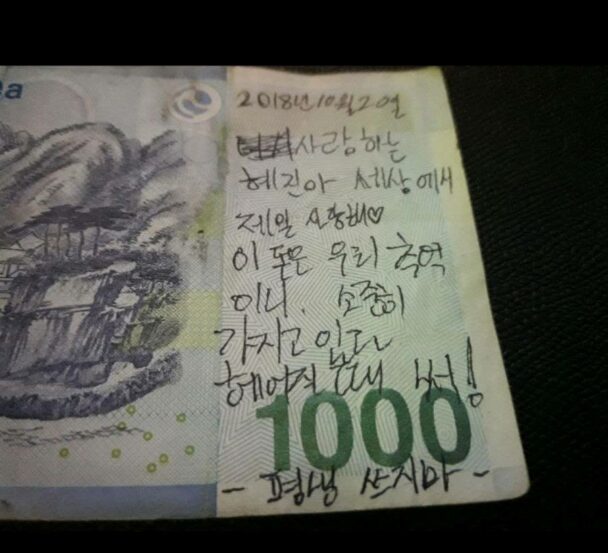 ea
2018년 10월 20일
사랑하는
혜진아 세상에서
제일 사랑해♡
이 돈은 우리 추억
이니. 소중히
가지고 있다
헤어지면 써!
1000
- 평생 쓰지마 -